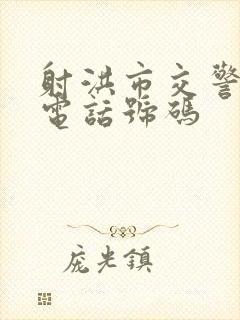 射洪市交警
電話號碼
庞光鎮